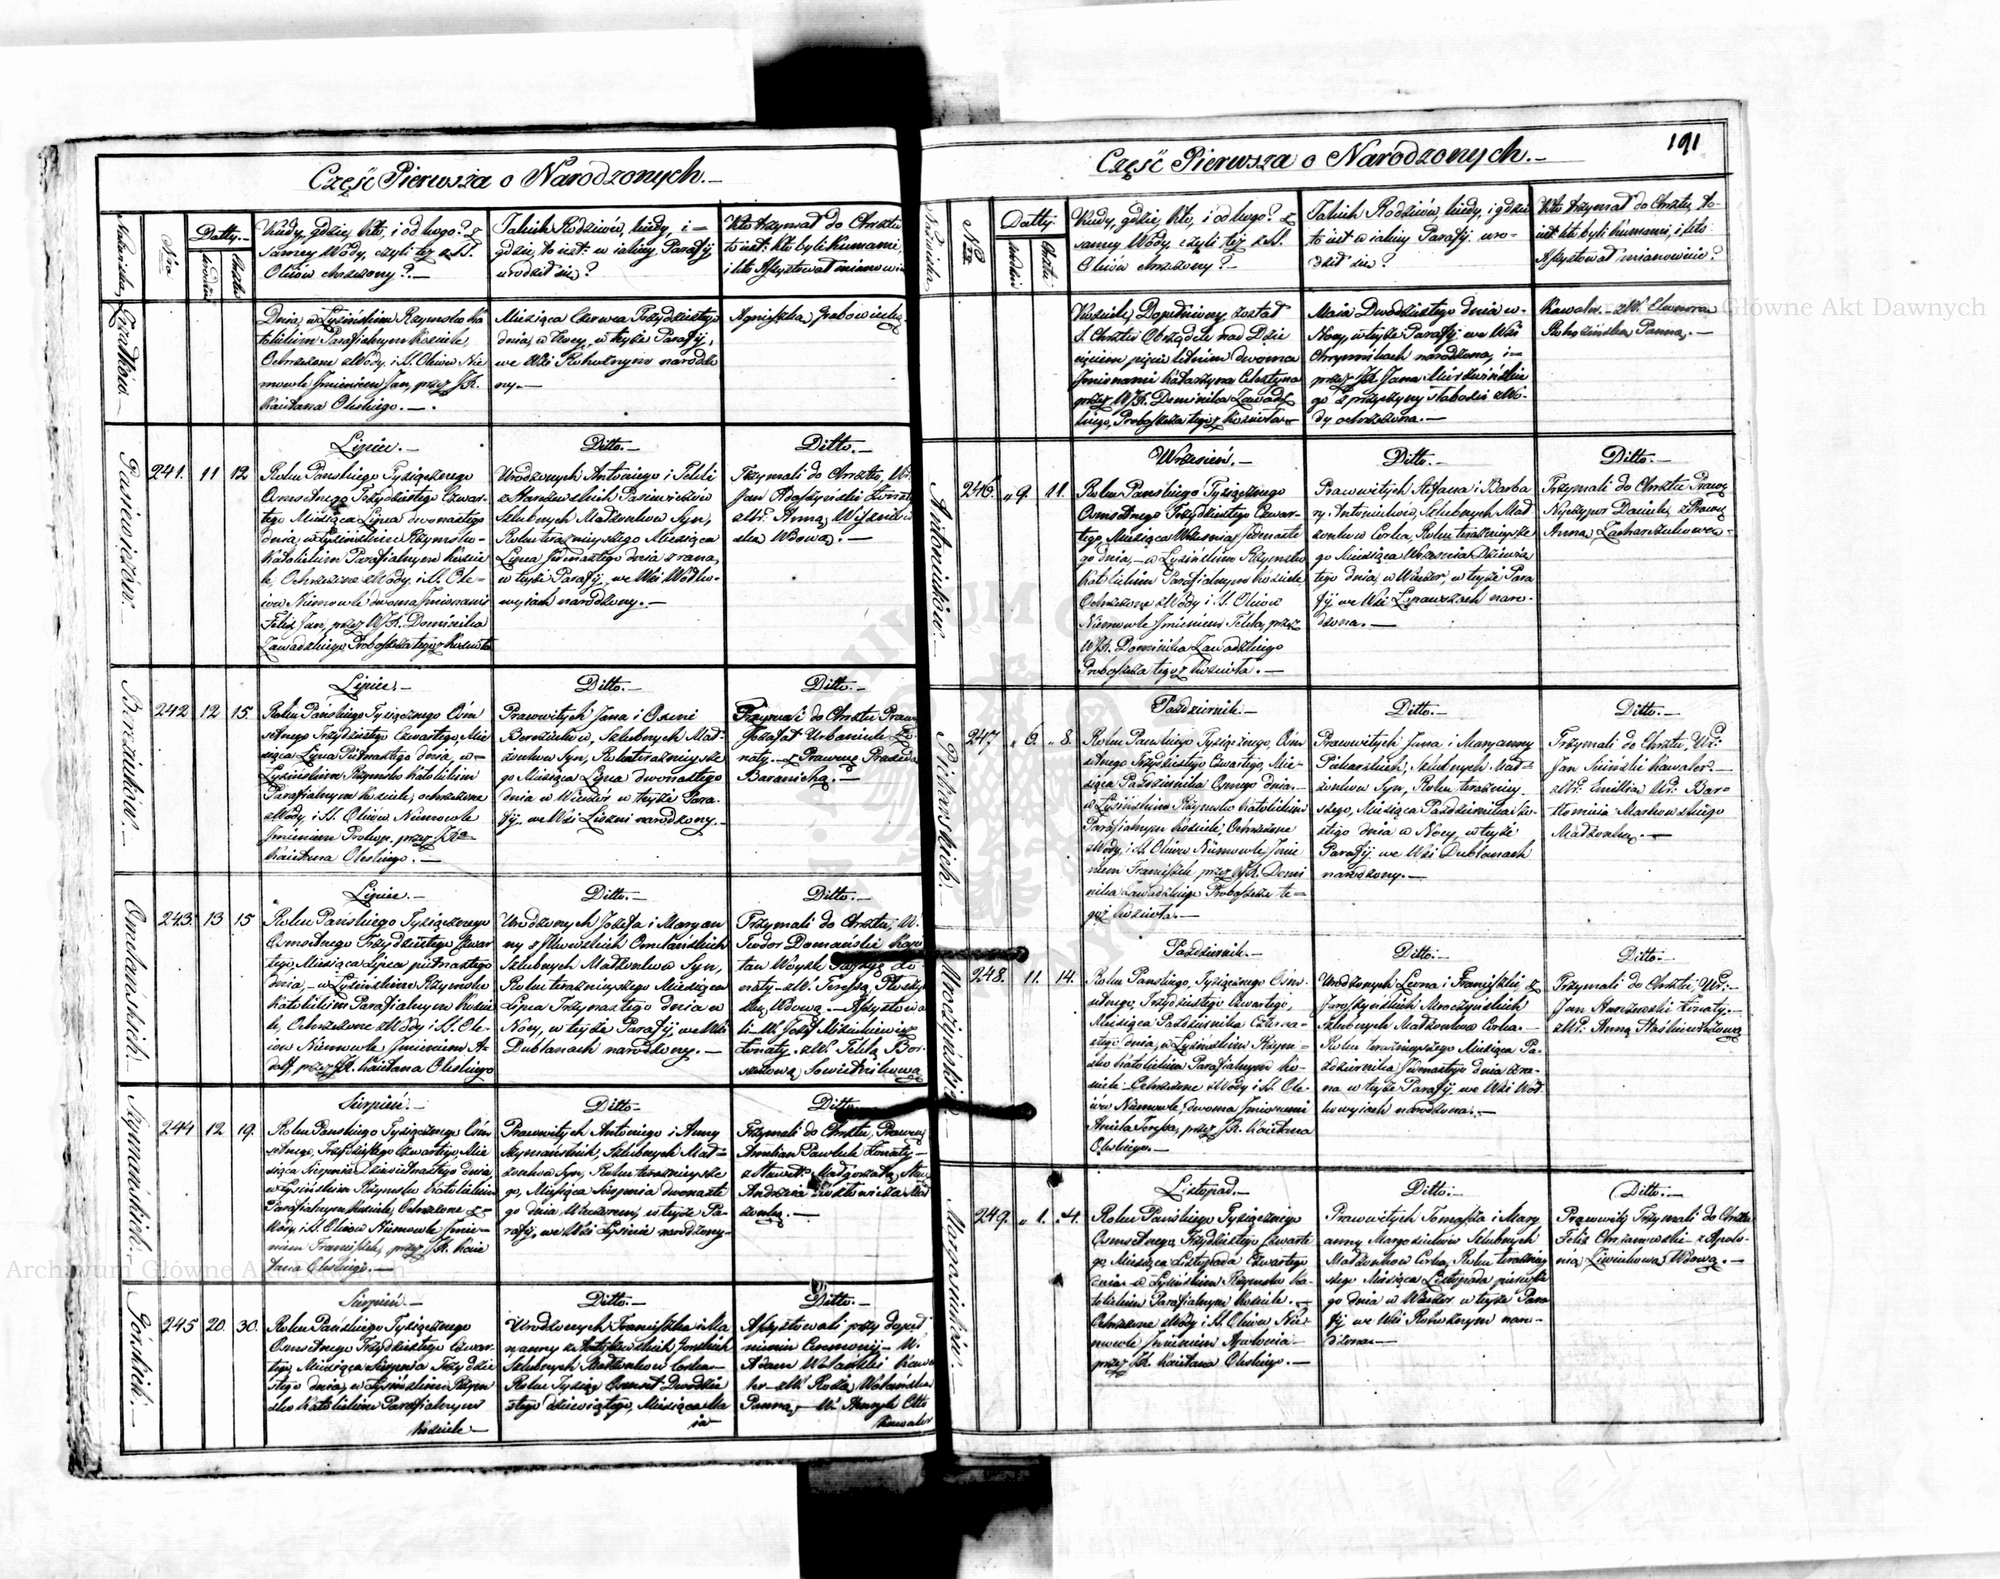 Część Pierwsza o Narodzonych.
Nro
Datty.
Kiedy, gdzie, kto, i od kogo? z
samey Wody, czyli też z S.
Oleiów chrzczony?
Jakich Rodziców, kiedy, i
gdzie, to iest: w iakiey Parafij
urodził się?
Kto trzymał do Chrztu
to iest: kto byli Kumami,
i kto Assystował mianowi
Dnia, w Łysińskim Rzymsko Ka
tolickim Parafialnym Kościele,
Ochrzczone z Wody, i S. Oleiów Nie
mowle Imieniem Jan, przez JX.
Kaietana Oleskiego.
Miesiąca Czerwca Trzydziestego
dnia, w Nocy, w teyże Parafij,
we Wsi narodzo
ny.
Agnieszka Grabowiecka
Pasiewiczów.
241. 11 12
Lipiec.
Roku Pańskiego Tysiącznego
Osmsetnego Trzydziestego Czwar-
tego Miesiąca Lipca dwónastego
dnia, w Łysińskim Rzymsko-
Katolickim Parafialnym Koście
le, Ochrzczone z Wody, i S. Ole-
iów Niemowle dwoma Imionami
Felix Jan, przez WJX. Dominika
Zawadzkiego Proboszcza tegoż Kościoła
Ditto.
Urodzonych Antoniego i Tekli
Pasiewiczów
Szlubnych Małżonków Syn,
Roku teraznieyszego Miesiąca
Lipca Jedenastego dnia z rana,
w teyże Parafij, we Wsi Wodko-
wyiach narodzony.
Ditto.
Trzymali do Chrztu, Ur.
Jan
z Ur. Anną
Wdową.
242 12 15.
Lipiec.
Roku Pańskiego Tysiącznego Ośm
setnego Trzydziestego Czwartego, Mie
siąca Lipca Piętnastego dnia, w
Łysińskim Rzymsko Katolickim
Parafialnym Kościele, ochrzczone
z Wody, i S. Oleiów Niemowle
Imieniem Prokop, przez JXa
Kaietana Oleskiego.
Ditto.
Prawowitych Jana i Oxeni
Szlubnych Mał-
żonków Syn, Roku teraznieysze
go Miesiąca Lipca dwónastego
dnia w Wieczór w teyże Para
fij, we Wsi narodzony.
Ditto.
Trzymali do Chrztu Praw.
Jozafat Urbanik Żo
naty. z Prawną
Baranicką.
Omelańskich.
243. 13 15
Lipiec.
Roku Pańskiego Tysiącznego
Osmsetnego Trzydziestego Czwar
tego, Miesiąca Lipca piętnastego
dnia, w Łysińskim Rzymsko
Katolickim Parafialnym Koście
le, Ochrzczone z Wody i S. Ole-
iów Niemowle, Imieniem A-
dolf, przez JX. Kaietana Oleskiego
Ditto.
Urodzonych Józefa i Maryan
ny z Omelańskich
Szlubnych Małżonków Syn,
Roku teraznieyszego Miesiąca
Lipca Trzynastego dnia w
Nocy, w teyże Parafij, we Wsi
Dublanach narodzony.
Ditto.
Trzymali do Chrztu, W.
Teodor Domański Kapi
tan Woysk
naty. z W. Teressą
Wdową. Assystowa
li W. Józef Mickiewicz
Żonaty. z W. Teklą Bor
Sowietnikową
Szymańskich.
244 12 19.
Sierpień.
Roku Pańskiego Tysiącznego Ośm
setnego, Trzydziestego Czwartego, Mie
siąca Sierpnia Dziewiętnastego dnia,
w Łysińskim Rzymsko Katolickim
Parafialnym Kościele, Ochrzczone z
Wody, i S. Oleiów Niemowle Imie-
niem Franciszek, przez JX. Kaie
tana Oleskiego.
Ditto
Prawowitych Antoniego i Anny
Szymańskich, Szlubnych Mał-
żonków Syn, Roku teraznieysze
go, Miesiąca Sierpnia dwonaste
go dnia Wieczorem, w teyże Pa-
rafij, we Wsi Łysinie narodzony.
Ditto
Trzymali do Chrztu, Prawny
Pawluk Żonaty
Małgorzatą
Andrzeia Mał
żonką.
Górskich.
245 20. 30.
Sierpień.
Roku Pańskiego Tysiącznego
Osmsetnego Trzydziestego Czwar-
tego, Miesiąca Sierpnia Trzydzie
stego dnia, w Łysińskim Rzym
sko Katolickim Parafialnym
Kościele
Ditto.
Urodzonych Franciszka i Ma
ryanny Górskich
Szlubnych Małżonków Córka
Roku Tysiąc Osmset Dwódzie
stego dziewiątego, Miesiąca Ma
ia
Ditto.
Assystowali przy dopeł
nieniu Ceremonij W.
Adam Wolański Kawa
ler z W. Rozą Wolańską
Panną, W. Henryk Otto
Kawaler
191
Część Pierwsza o Narodzonych.
Nro
Datty
Kiedy, gdzie, kto, i od kogo? z
samey Wody, czyli też z S.
Oleiów chrzczony?
Jakich Rodziców, kiedy, i gdzie
to iest w iakiey Parafij uro-
dził się?
Kto trzymał do Chrztu, to-
iest kto byli kumami, i kto
Assystował mianowicie?
Kościele, Dopełniony został
S. Chrztu Obrządek nad Dzie
cięciem pięcioletnim dwoma
Imionami Katarzyna Celestyna
przez WJX. Dominika Zawadz
kiego, Proboszcza tegoż Kościoła
Maia Dwódziestego dnia w
Nocy, w teyże Parafij we Wsi
narodzona, i
przez JX. Jana
go z przyczyny słabości z Wo-
dy ochrzczona.
Kawaler. z W. Eleonorą
Panną.
Antoniuków.
246. 9. 11.
Wrzesień.
Roku Pańskiego Tysiącznego
Osmsetnego Trzydziestego Czwar-
tego, Miesiąca Września, Jedenaste
go dnia, w Łysińskim Rzymsko
Katolickim Parafialnym Kościele
Ochrzczone z Wody i S. Oleiów
Niemowle Imieniem Tekla, przez
WJX. Dominika Zawadzkiego
Proboszcza tegoż Kościoła.
Ditto.
Prawowitych Stefana i Barba
ry Antoniuków, Szlubnych Mał
żonków Córka, Roku teraznieysze
go Miesiąca Września Dziewią
tego dnia, w Wieczór, w teyże Para
fij we Wsi Lipawszach naro-
dzona.
Ditto.
Trzymali do Chrztu Prawny
Nyczypor Daciuk, z Prawną
Anną
Piekarskich.
247 6. 8.
Październik.
Roku Pańskiego Tysiącznego, Ośm
setnego Trzydziestego Czwartego, Mie-
siąca Października Osmego dnia.
w Łysińskim Rzymsko Katolickim
Parafialnym Kościele Ochrzczone
z Wody, i S. Oleiów Niemowle, Imie
niem Franciszek, przez WJX. Domi
nika Zawadzkiego Proboszcza te-
goż Kościoła.
Ditto.
Prawowitych Jana i Maryanny
Piekarskich, Szlubnych Mał-
żonków Syn, Roku teraznieyszego,
Miesiąca Października Szó-
stego dnia w Nocy, w teyże
Parafij, we Wsi Dublanach
narodzony.
Ditto.
Trzymali do Chrztu, Ur:
Jan Kawaler.
z Ur: Emilią Ur: Bar-
tłomieia Markowskiego
Małżonką.
Mroczyńskich.
248. 11. 14.
Październik.
Roku Pańskiego, Tysiącznego Ośm-
setnego, Trzydziestego Czwartego,
Miesiąca Października Czterna-
stego dnia, w Łysińskim Rzym-
sko Katolickim Parafialnym Ko-
ściele Ochrzczone z Wody i S. Ole-
iów Niemowle, dwoma Imionami
Aniela Teressa, przez JX. Kaietana
Oleskiego.
Ditto.
Urodzonych Leona i Franciszki z
Jaroszyńskich Mroczyńskich
Szlubnych Małżonków Córka.
Roku teraznieyszego Miesiąca Pa-
ździernika Jedenastego dnia z ra-
na w teyże Parafij, we Wsi Wod-
kowyiach narodzona.
Ditto.
Trzymali do Chrztu, Ur:
Jan Żonaty.
z Ur: Anną
249. 1. 4.
Listopad.
Roku Pańskiego Tysiącznego
Osmsetnego, Trzydziestego Czwarte
go, Miesiąca Listopada Czwartego
dnia w Łysińskim Rzymsko Ka-
tolickim Parafialnym Kościele.
Ochrzczone z Wody i S. Oleiów Nie-
mowle Imieniem Apolonia
przez JX. Kaietana Oleskiego.
Ditto.
Prawowitych Tomasza i Mary
anny Szlubnych
Małżonków Córka, Roku teraznie
szego Miesiąca Listopada pierwsze
go dnia w Wieczór w teyże Para
fij we Wsi naro-
dzona.
Ditto.
Prawowity Trzymali do Chrztu
Felix z Apolo-
nią Wdową.
Archiwum Główne Akt Dawnych
Główne Akt Dawnych